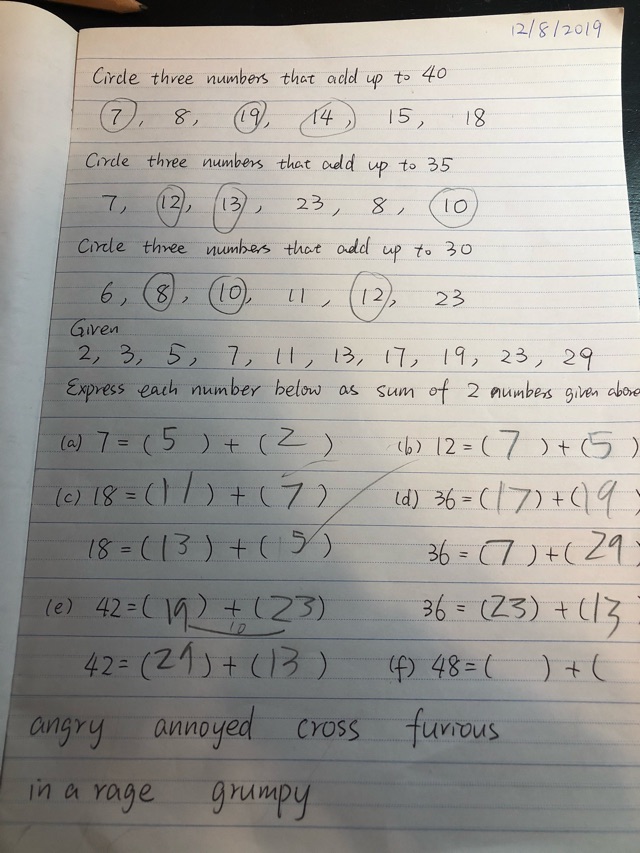 12/8/2019
Circle three numbers that add up to 40
7, 8, 19, 14, 15, 18
Circle three numbers that add up to 35
7, 12, 13, 23, 8, 10
Circle three numbers that add up to 30
6, 8, 10, 11, 12, 23
Given
2, 3, 5, 7, 11, 13, 17, 19, 23, 29
Express each number below as sum of 2 numbers given above
(a) 7 = (5) + (2) (b) 12 = (7) + (5)
(c) 18 = (11) + (7) (d) 36 = (17) + (19
18 = (13) + (5) 36 = (7) + (29
(e) 42 = (19) + (23) 36 = (23) + (13
10
42 = (29) + (13) (f) 48 = ( ) + (
angry annoyed cross furious
in a rage grumpy